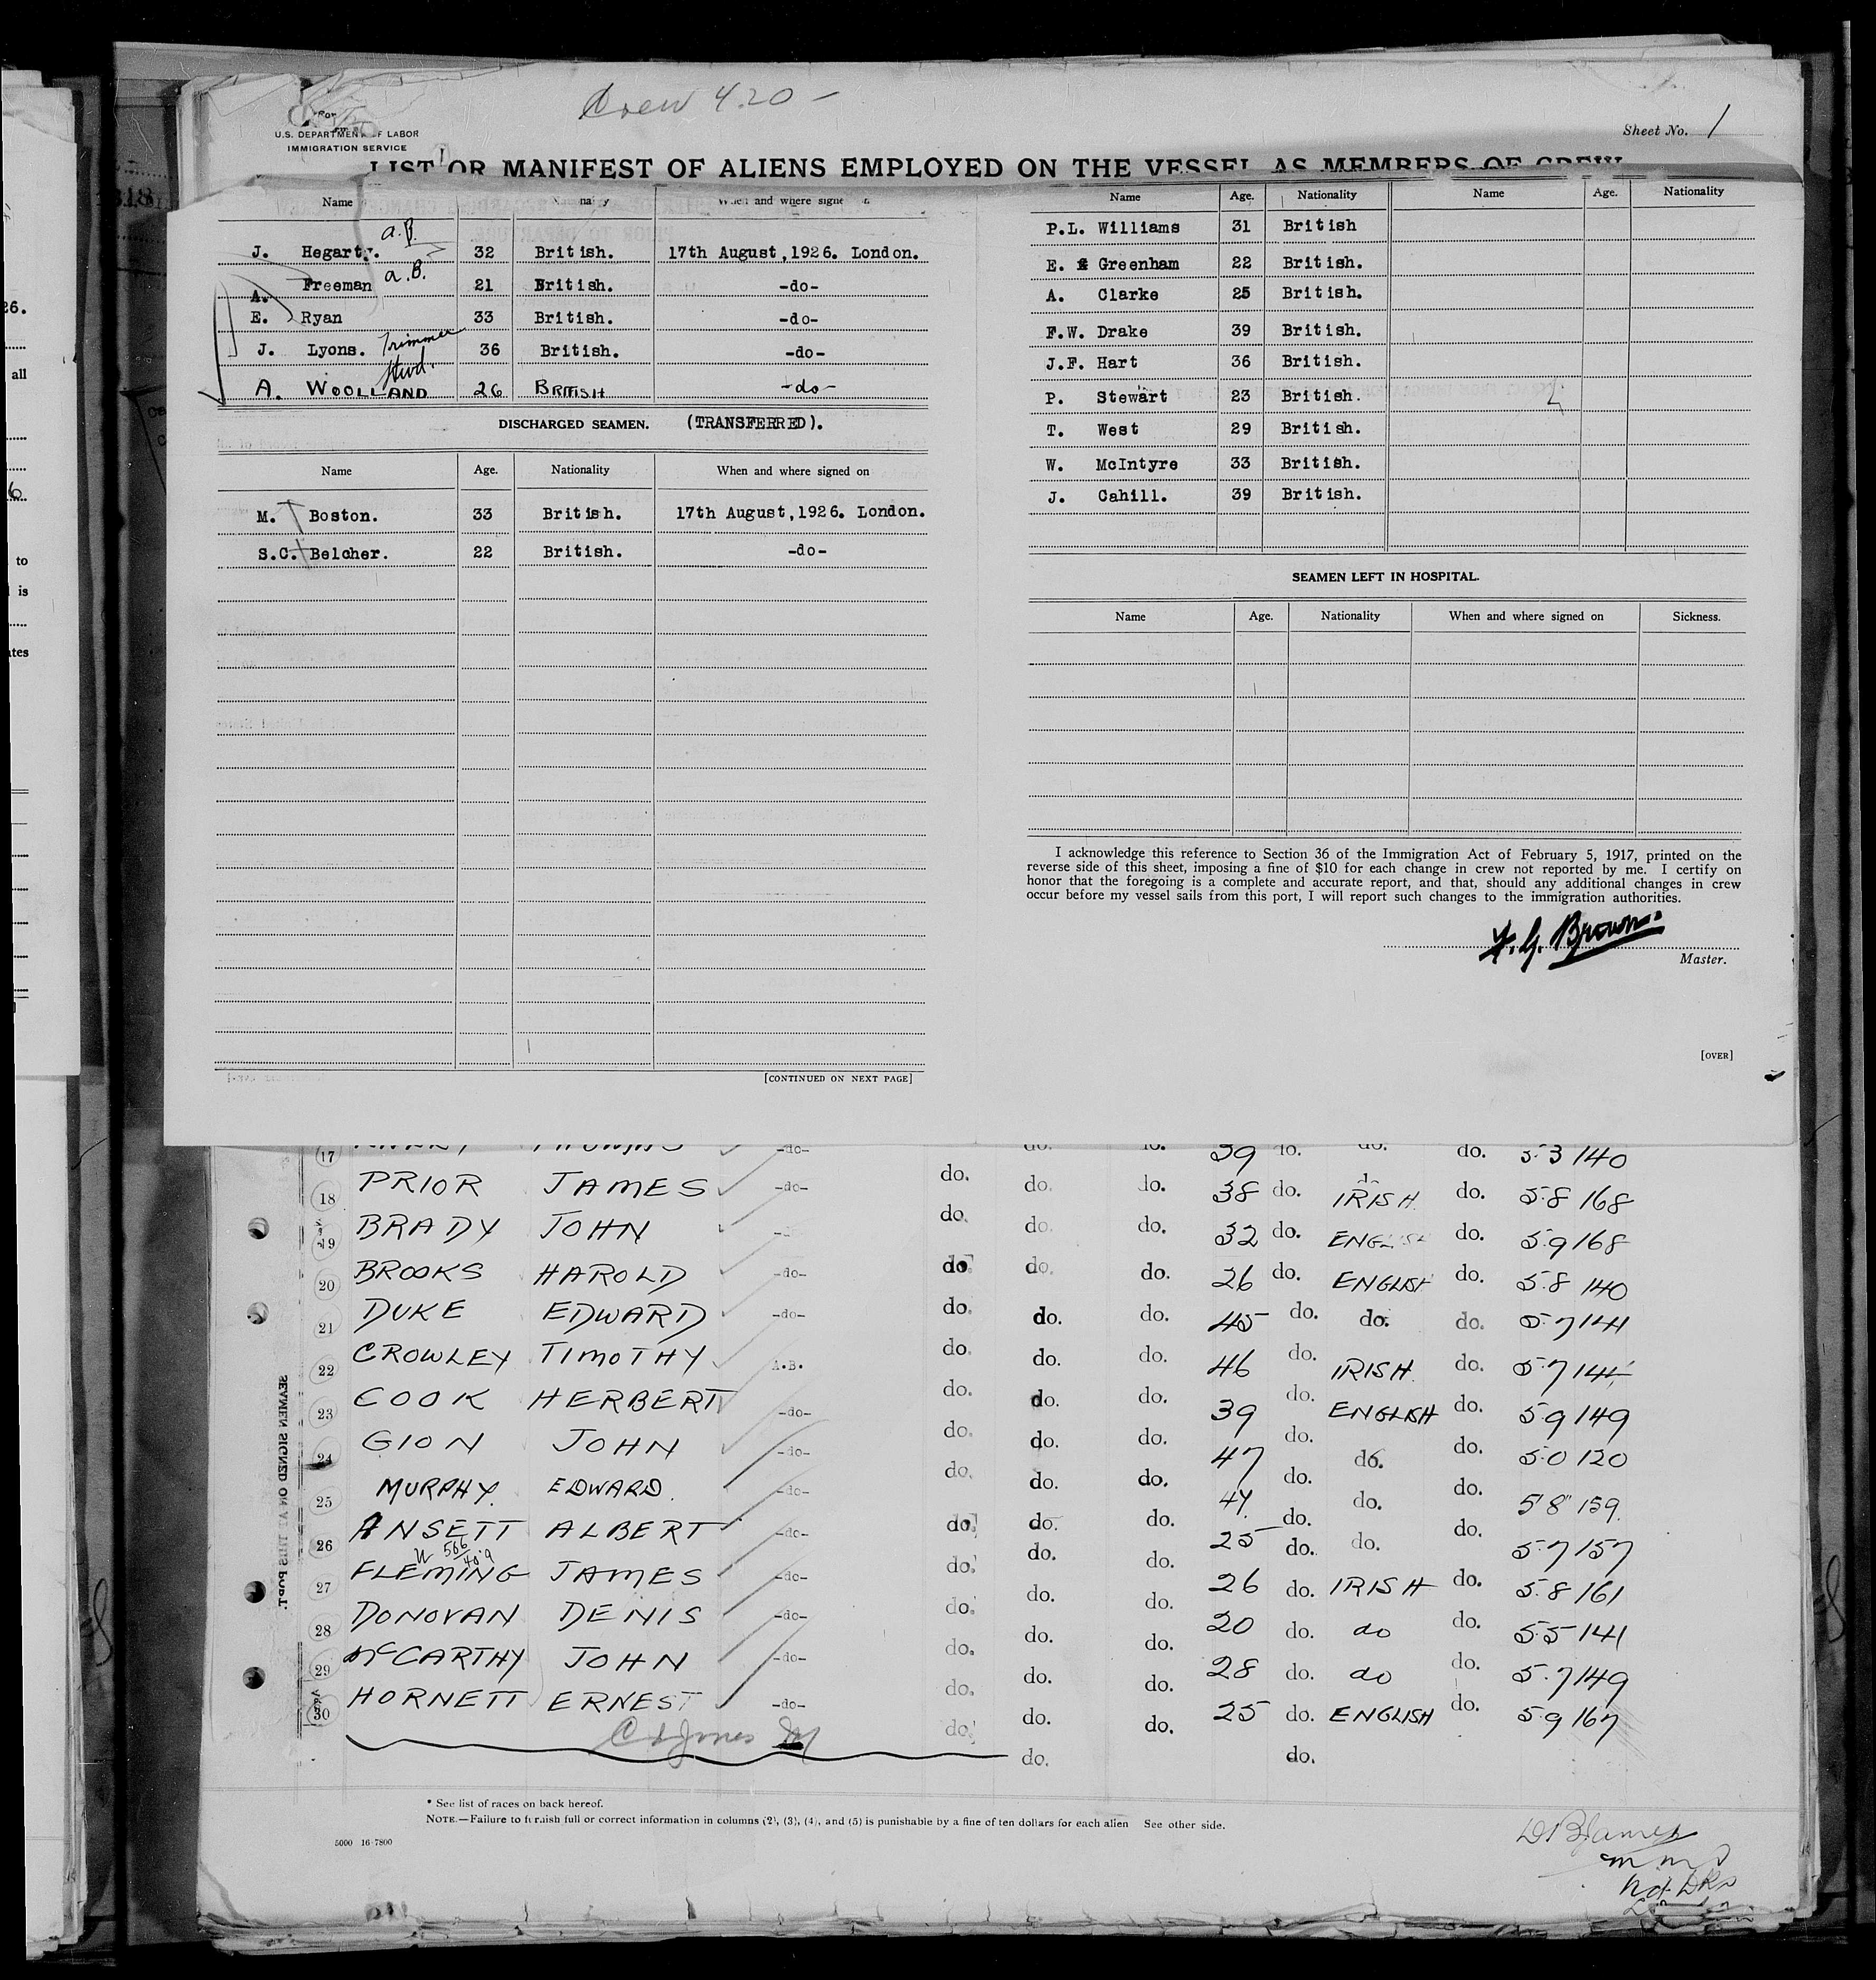 Crew 4.20 -
Sheet No. 1
U.S. DEPARTMENT OF LABOR
IMMIGRATION SERVICE
LIST OR MANIFEST OF ALIENS EMPLOYED ON THE VESSEL AS MEMBERS OF CREW
Name When and where signe
a.B.
J. Hegarty. 32 British. 17th August, 1926. London.
a.B.
A. Freeman 21 British. -do-
E. Ryan 33 British. -do-
J. Lyons. Trimmer 36 British. -do-
A. WOOLLAND 26 BRITISH -do-
DISCHARGED SEAMEN. (TRANSFERRED).
Name Age. Nationality When and where signed on
M. Boston. 33 British. 17th August, 1926. London.
S.C. Belcher. 22 British. -do-
[CONTINUED ON NEXT PAGE]
Name Age. Nationality Name Age. Nationality
P.L. Williams 31 British
E. Greenham 22 British.
A. Clarke 25 British.
F.W. Drake 39 British.
J.F. Hart 36 British.
P. Stewart 23 British.
T. West 29 British.
W. McIntyre 33 British.
J. Cahill. 39 British.
SEAMEN LEFT IN HOSPITAL.
Name Age. Nationality When and where signed on Sickness.
I acknowledge this reference to Section 36 of the Immigration Act of February 5, 1917, printed on the
reverse side of this sheet, imposing a fine of $10 for each change in crew not reported by me. I certify on
honor that the foregoing is a complete and accurate report, and that, should any additional changes in crew
occur before my vessel sails from this port, I will report such changes to the immigration authorities.
F. G. Brown.
Master.
[OVER]
17 -do- do. 39 do. do. 5.3 140
18 PRIOR JAMES -do- do. do. do. 38 do. IRISH do. 5.8 168
19 BRADY JOHN do. do. do. 32 do. ENGLISH do. 5.9 168
20 BROOKS HAROLD -do- do. do. do. 26 do. ENGLISH do. 5.8 140
21 DUKE EDWARD -do- do. do. do. 45 do. do. do. 5.7 141
22 CROWLEY TIMOTHY A.B. do. do. do. 46 do. IRISH do. 5.7 141
23 COOK HERBERT -do- do. do. do. 39 do. ENGLISH do. 5.9 149
24 GION JOHN -do- do. do. do. 47 do. do. do. 5.0 120
25 MURPHY. EDWARD. -do- do. do. do. 47. do. do. do. 5'8" 159.
26 ANSETT ALBERT -do- do. do. do. 25 do. do. do. 5.7 157
27 FLEMING JAMES -do- do. do. do. 26 do. IRISH do. 5.8 161
28 DONOVAN DENIS -do- do. do. do. 20 do. do do. 5.5 141
29 McCARTHY JOHN -do- do. do. do. 28 do. do do. 5.7 149
30 HORNETT ERNEST -do- do. do. do. 25 do. ENGLISH do. 5.9 167
do. do. do.
SEAMEN SIGNED ON AT THIS PORT.
* See list of races on back hereof.
NOTE.—Failure to furnish full or correct information in columns (2), (3), (4), and (5) is punishable by a fine of ten dollars for each alien See other side.
5000 16-7800